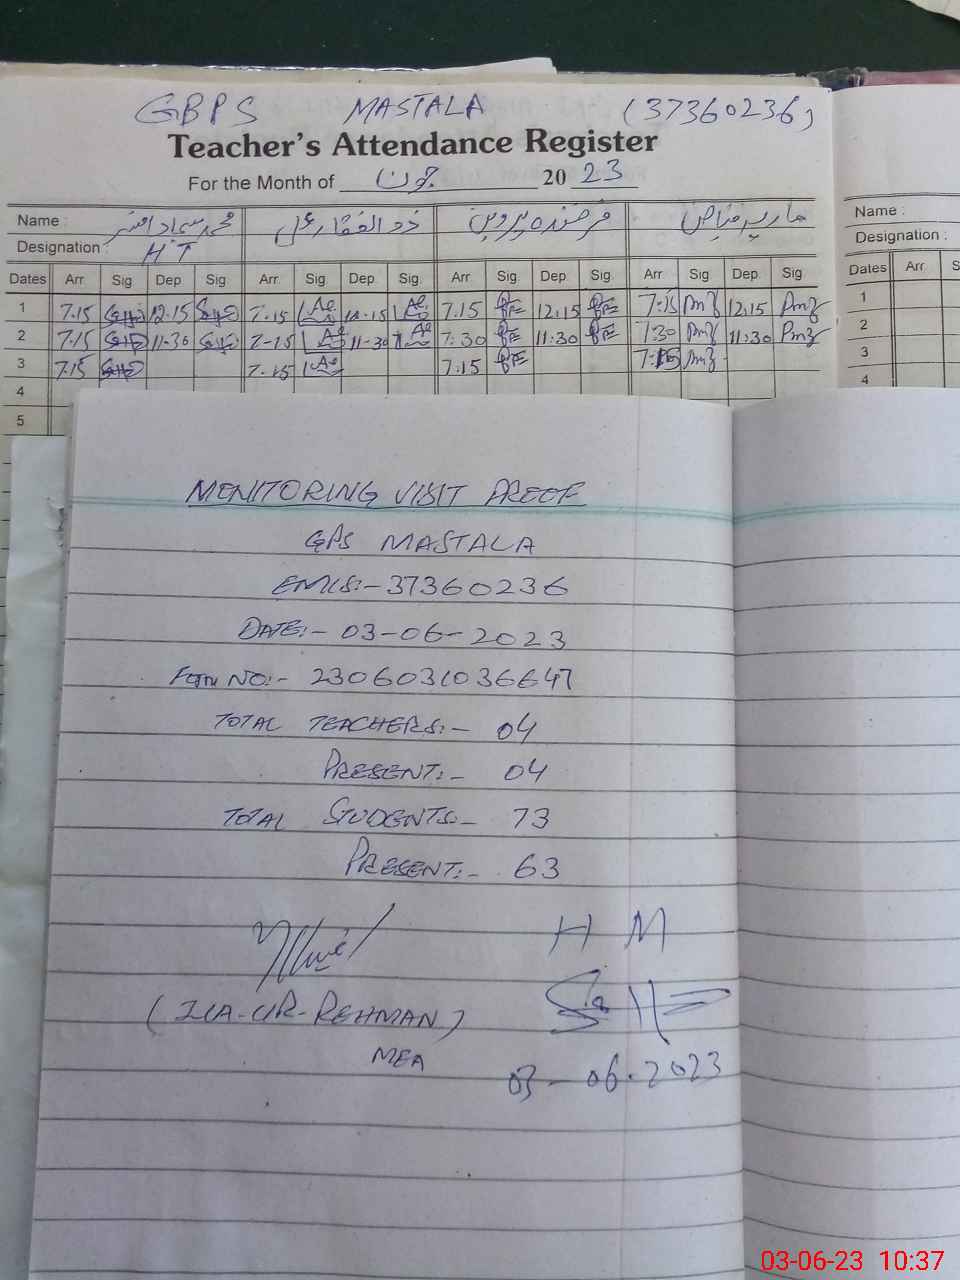 GBPS MASTALA (37360236)
Teacher's Attendance Register
For the Month of جون 20 23
Name : محمد سجاد اختر ذوالفقار علی فرخندہ پروین ماریہ فیاض Name :
Designation : HT Designation :
Dates Arr. Sig Dep Sig. Arr. Sig. Dep. Sig. Arr Sig. Dep. Sig. Arr Sig. Dep. Sig Dates Arr.
1 7.15 12.15 7.15 12.15 7.15 12.15 7.15 12.15 1
2 7.15 11.30 7.15 11.30 7.30 11.30 7.30 11.30 2
3 7.15 7.15 7.15 7.15 3
4 4
5
MONITORING VISIT PROOF
GPS MASTALA
EMIS:- 37360236
DATE:- 03-06-2023
Form NO:- 2306031036647
TOTAL TEACHERS:- 04
PRESENT:- 04
TOTAL STUDENTS:- 73
PRESENT:- 63
H M
(ZIA-UR-REHMAN)
MEA
03-06-2023
03-06-23 10:37